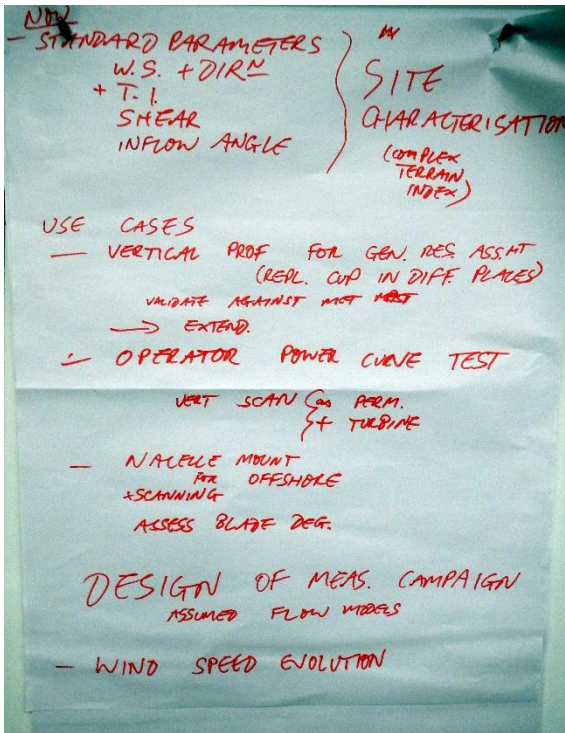 NOW
- STANDARD PARAMETERS
W.S. + DIRN
+ T.I.
SHEAR
INFLOW ANGLE
SITE
CHARACTERISATION
(COMPLEX
TERRAIN
INDEX)
USE CASES
— VERTICAL PROF FOR GEN. RES. ASS.MT
(REPL. CUP IN DIFF. PLACES)
VALIDATE AGAINST MET MAST
→ EXTEND.
- OPERATOR POWER CURVE TEST
VERT SCAN PERM.
+ TURBINE
— NACELLE MOUNT
FOR OFFSHORE
+SCANNING
ASSESS BLADE DEG.
DESIGN OF MEAS. CAMPAIGN
ASSUMED FLOW MODELS
- WIND SPEED EVOLUTION